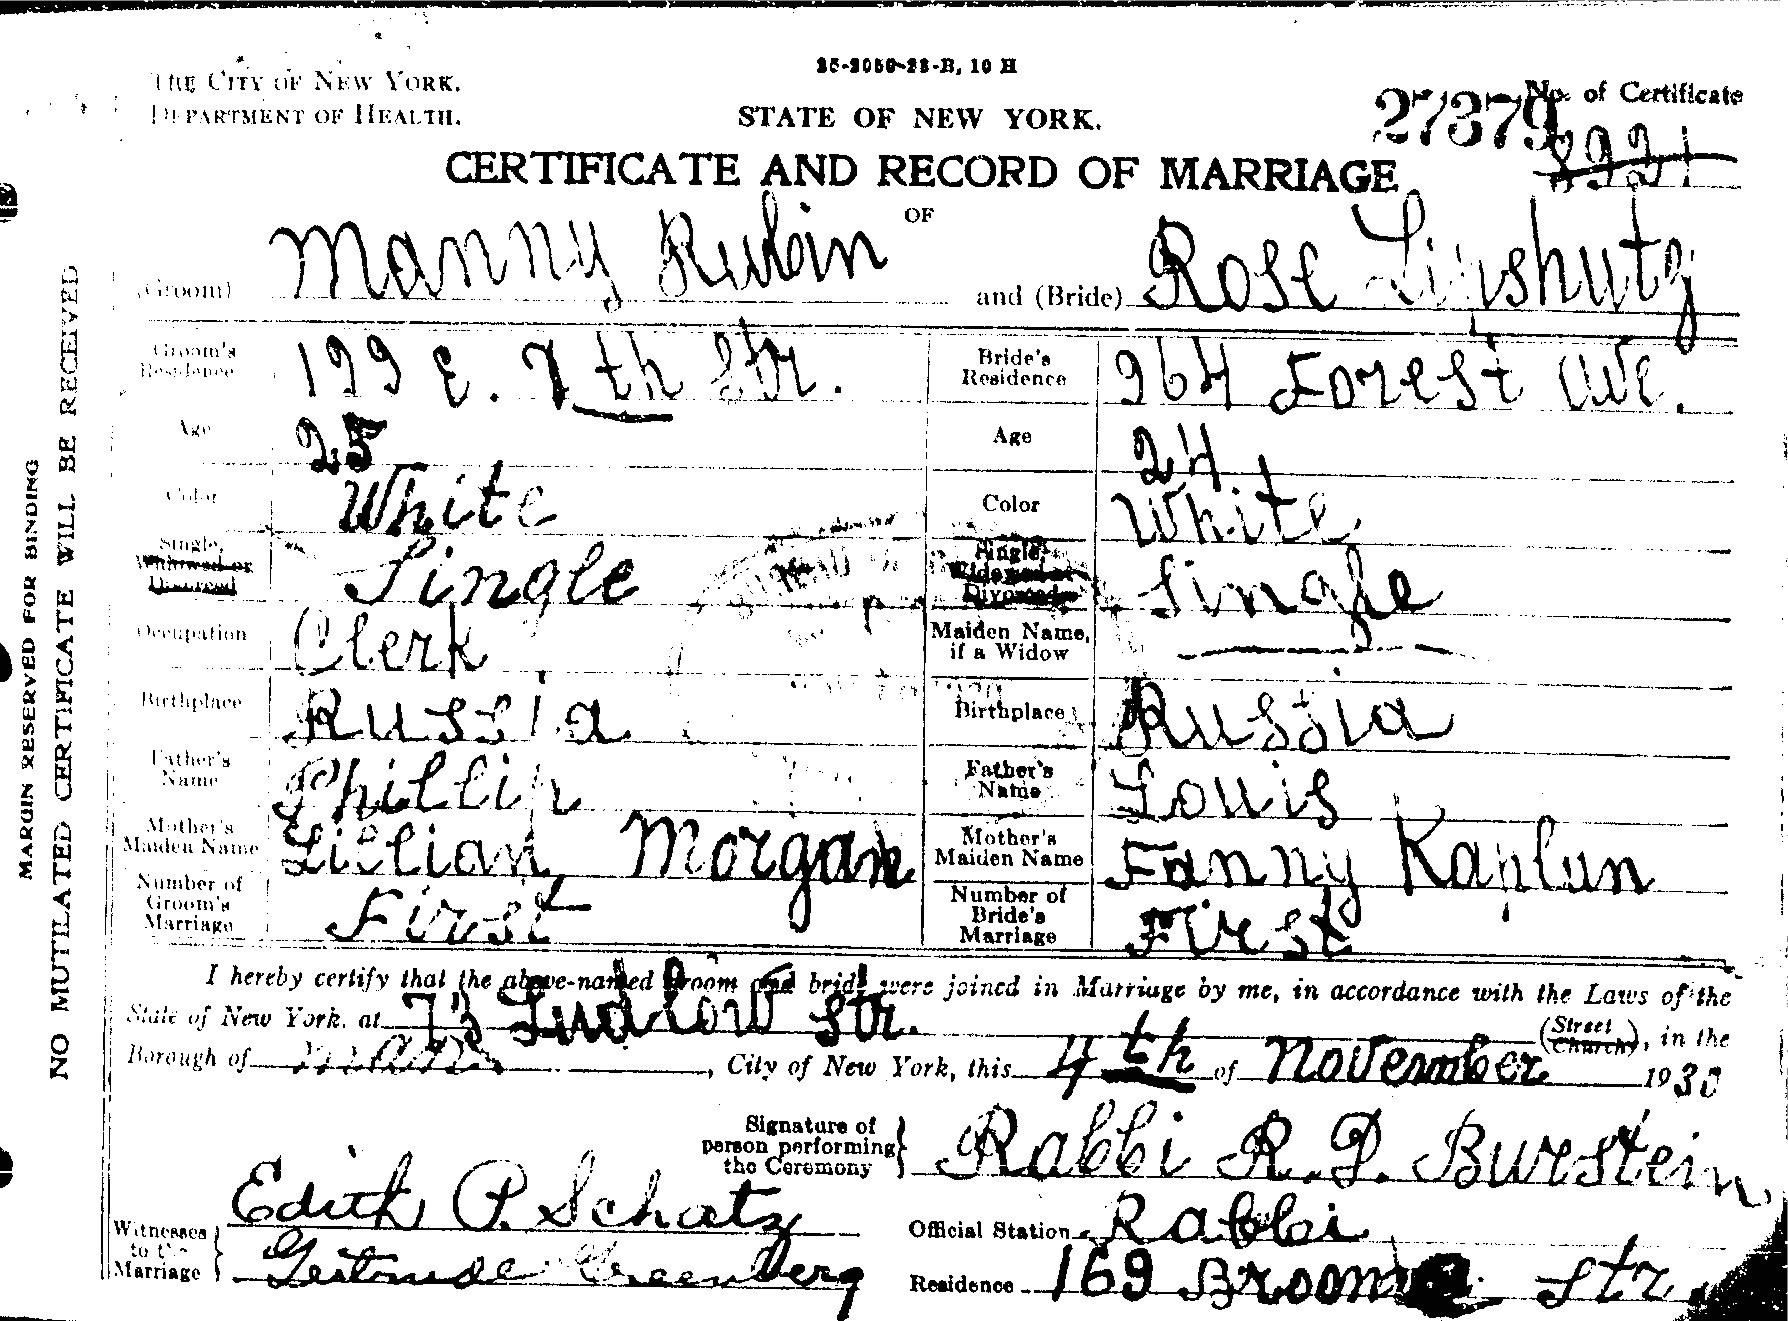 25-2050-28-B, 10 H
THE CITY OF NEW YORK.
DEPARTMENT OF HEALTH.
STATE OF NEW YORK.
No. of Certificate
27379
8921
CERTIFICATE AND RECORD OF MARRIAGE
OF
(Groom) Manny Rubin and (Bride) Rose Lipshutz
Groom's Residence 199 E. 7th Str. Bride's Residence 964 Forest Ave.
Age 25 Age 24
Color White Color White
Single, Widowed or Divorced Single Single, Widowed or Divorced Single
Occupation Clerk Maiden Name, if a Widow
Birthplace Russia Birthplace Russia
Father's Name Phillip Father's Name Louis
Mother's Maiden Name Lillian Morgan Mother's Maiden Name Fanny Kaplun
Number of Groom's Marriage First Number of Bride's Marriage First
I hereby certify that the above-named groom and bride were joined in Marriage by me, in accordance with the Laws of the
State of New York, at 73 Ludlow Str. (Street Church), in the
Borough of Manh , City of New York, this 4th of November 1930
Signature of person performing the Ceremony Rabbi R. D. Burstein
Witnesses to the Marriage Edith P. Schatz
Gertrude Greenberg
Official Station Rabbi
Residence 169 Broome Str.
MARGIN RESERVED FOR BINDING
NO MUTILATED CERTIFICATE WILL BE RECEIVED